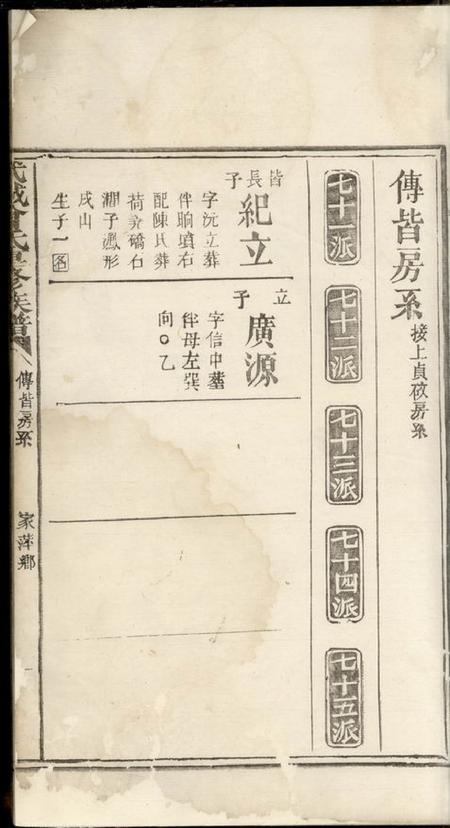 傳皆房系接上貞攸房系
七十一派
七十二派
七十三派
七十四派
七十五派
皆長子
紀立
字沅立葬
伴晌塡右
配陳氏葬
荷 礄石
澗子鳳形
戌山
生子一
立子
廣源
字信中葬
伴母左巽
向○乙
氏重修族譜
傳皆房系
家萍鄉